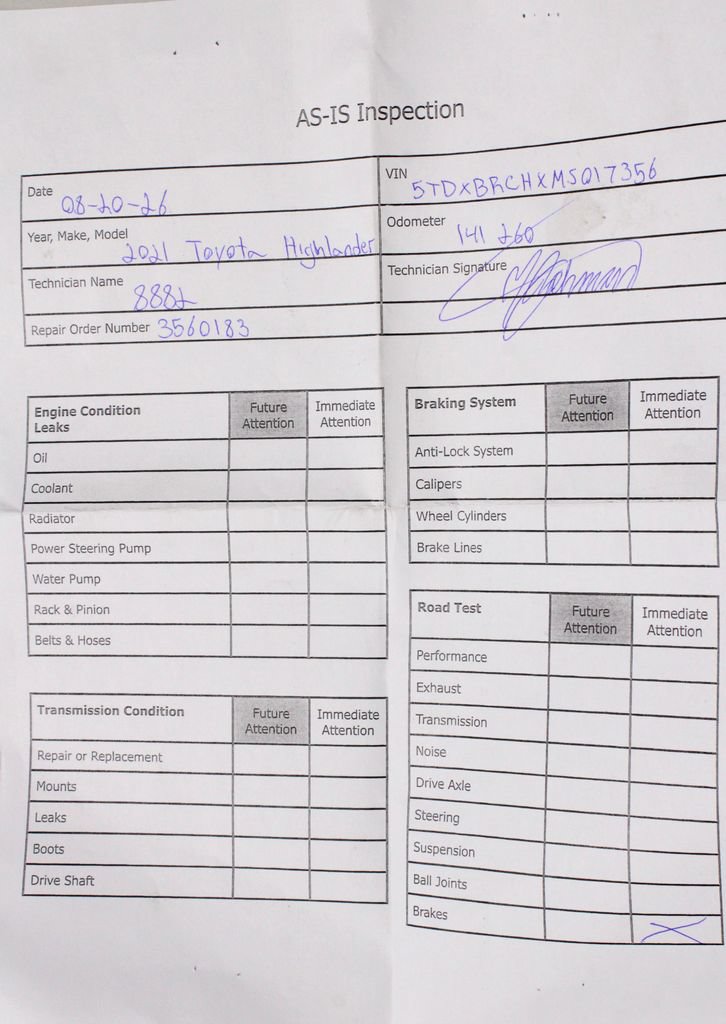 AS-IS Inspection
Date 08-20-26
VIN 5TDXBRCHXMS017356
Year, Make, Model 2021 Toyota Highlander
Odometer 141 260
Technician Name 8882
Technician Signature
Repair Order Number 3560183
Engine Condition
Leaks
Future Attention
Immediate Attention
Oil
Coolant
Radiator
Power Steering Pump
Water Pump
Rack & Pinion
Belts & Hoses
Transmission Condition
Future Attention
Immediate Attention
Repair or Replacement
Mounts
Leaks
Boots
Drive Shaft
Braking System
Future Attention
Immediate Attention
Anti-Lock System
Calipers
Wheel Cylinders
Brake Lines
Road Test
Future Attention
Immediate Attention
Performance
Exhaust
Transmission
Noise
Drive Axle
Steering
Suspension
Ball Joints
Brakes X